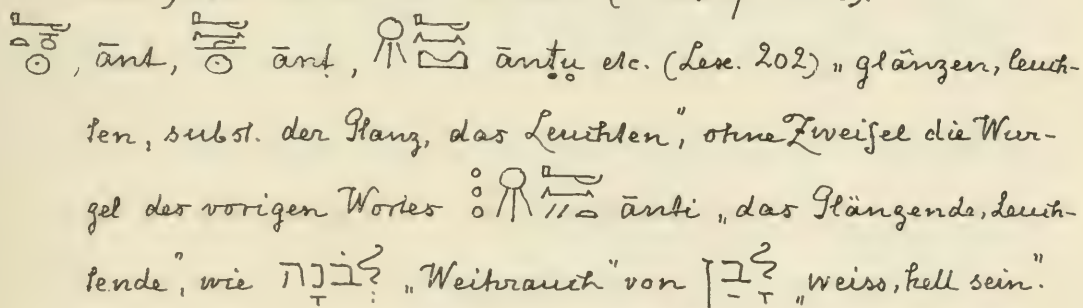 , ānt, ānṭ, ānṭu etc. (Lexe. 202) „glänzen, leuch-
ten, subst. der Glanz, das Leuchten", ohne Zweifel die Wur-
gel des vorigen Wortes ānti „das Glänzende, Leuch-
tende", wie לְבֹנָה „Weihrauch" von לָבַן „weiss, hell sein."